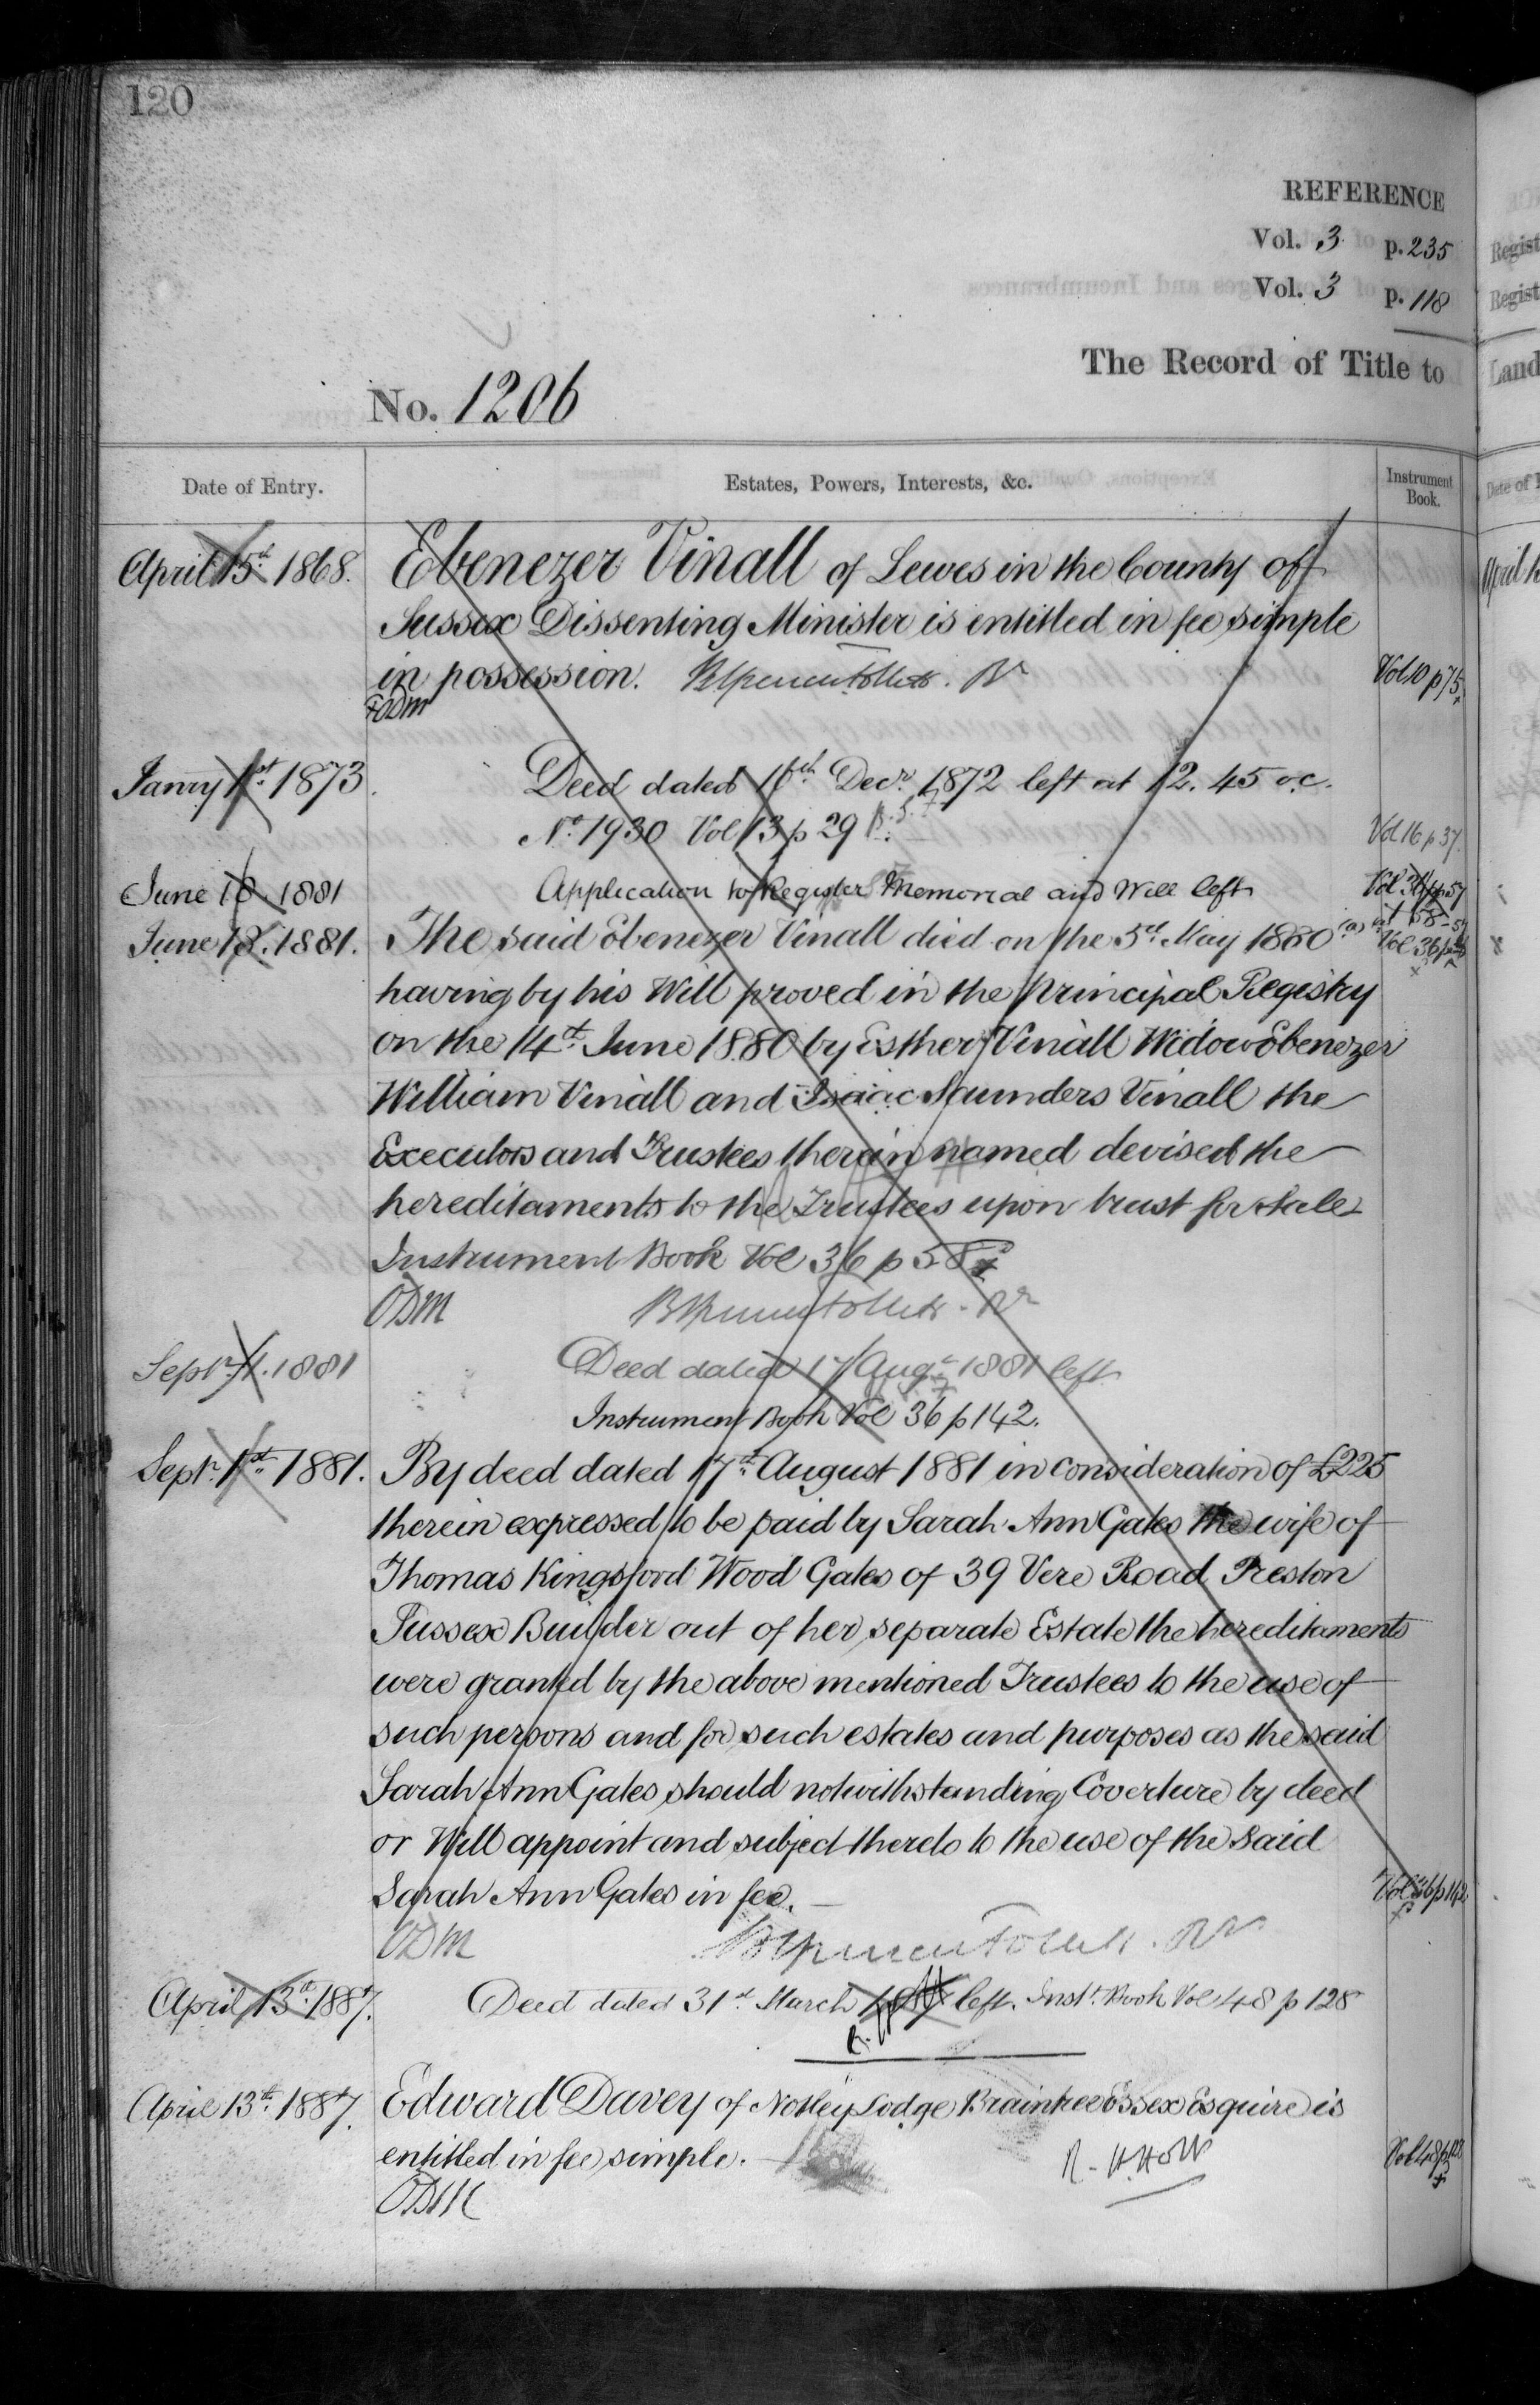 120
REFERENCE
Vol. 3 p. 235
Vol. 3 p. 118
The Record of Title to
No. 1206
Date of Entry. Estates, Powers, Interests, &c. Instrument Book.
April 15th 1868. Ebenezer Vinall of Lewes in the County of
Sussex Dissenting Minister is entitled in fee simple
in possession. Vol 10 p 75
ODM
Janry 1st 1873. Deed dated Decr. 1872 left at 12.45 o.c.
No. 1930 Vol 13 p 29 Vol 16 p 37.
June 18. 1881 Application to Register Memorial and Will left
June 18. 1881. The said Ebenezer Vinall died on the 3rd May 1880
having by his Will proved in the Principal Registry
on the 14th June 1880 by Esther Vinall Widow Ebenezer
William Vinall and Isaac Saunders Vinall the
Executors and Trustees therein named devised the
hereditaments to the Trustees upon trust for sale
Instrument Book Vol 36 p 58
ODM
Septr. 1. 1881 Deed dated 17 Augt 1881 left
Instrument Book Vol 36 p 142.
Septr. 1st 1881. By deed dated 17th August 1881 in consideration of £225
therein expressed to be paid by Sarah Ann Gates the wife of
Thomas Kingsford Wood Gates of 39 Vere Road Preston
Sussex Builder out of her separate Estate the hereditaments
were granted by the above mentioned Trustees to the use of
such persons and for such estates and purposes as the said
Sarah Ann Gates should notwithstanding Coverture by deed
or Will appoint and subject thereto to the use of the said
Sarah Ann Gates in fee. Vol 36 p 142
ODM
April 13th 1887. Deed dated 31st March left. Inst. Book Vol 48 p 128
April 13th 1887. Edward Davey of Notley Lodge Braintree Essex Esquire is
entitled in fee simple. R. H. Holt Vol 48 p 128
ODM
Regist
Regist
Land
Date of
April